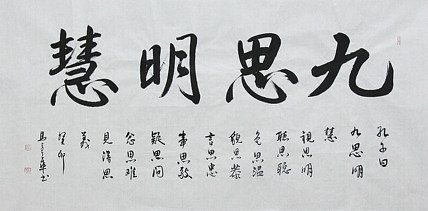 九思明慧
孔子曰
九思明
慧
視思明
聽思聰
色思溫
貌思恭
言思忠
事思敬
疑思問
忿思難
見得思
義
癸卯